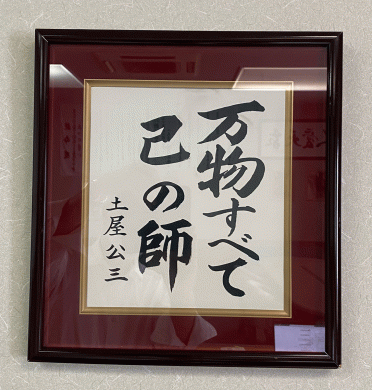 万物すべて
己の師
土屋公三